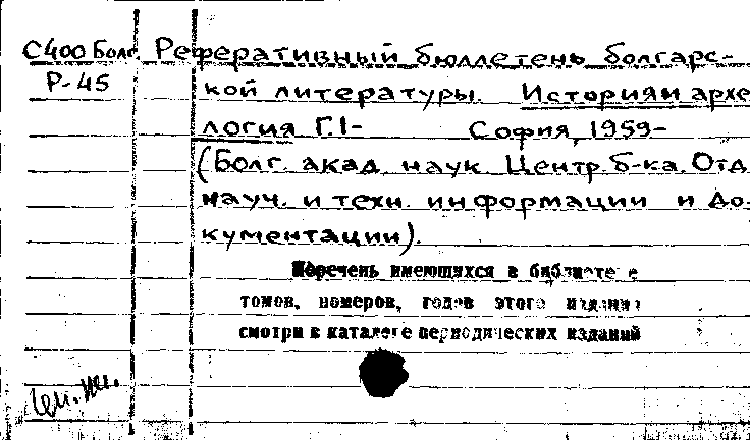 С400 Болг. Реферативный бюллетень болгарс-
Р-45 кой литературы. История и архе
логия Г.1- София, 1959-
(Болг. акад. наук. Центр. б-ка. Отд
науч. и техн. информации и до-
кументации).
Перечень имеющихся в библиотеке
томов, номеров, годов этого издания
смотри в каталоге периодических изданий